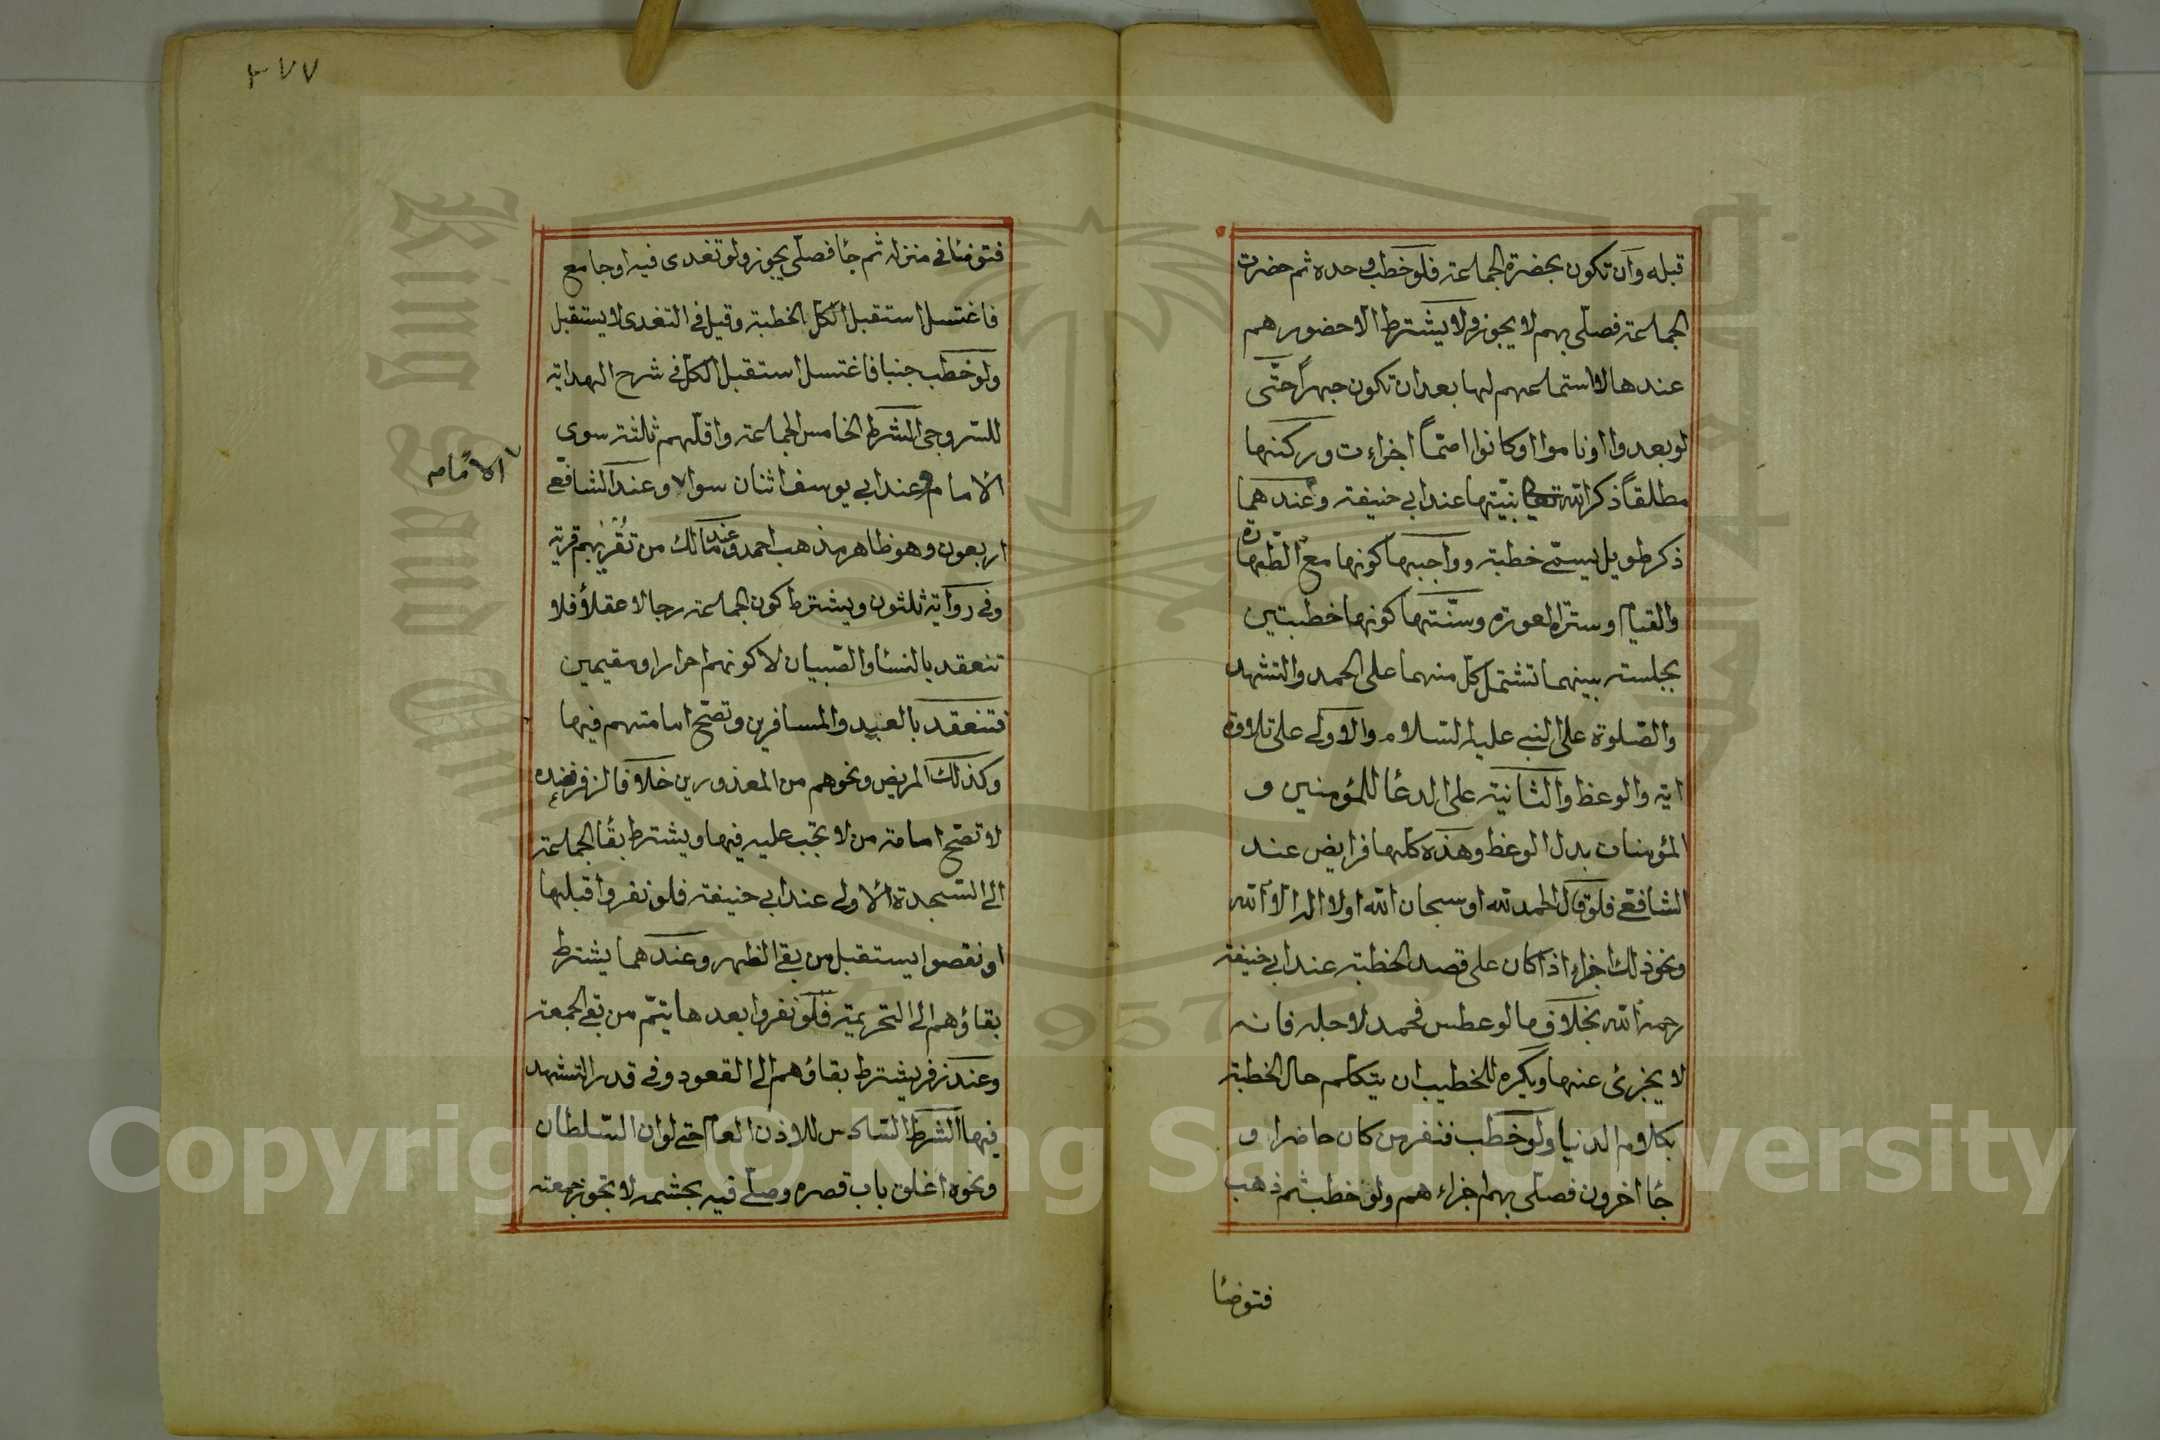 قبله وان تكون بحضرة الجماعة فلو خطب وحده ثم حضرت
الجماعة فصلّى بهم لا يجوز ولا يشترط الا حضورهم
عندها لا استماعهم لها بعد ان تكون جهراً حتّى
لو بعدوا او ناموا او كانوا اصمّاً اجزاءت وركنها
مطلقاً ذكر الله تعالى بنيّتها عند ابي حنيفة وعندهما
ذكر طويل يسمّى خطبة وواجبها كونها مع الطّهارة
والقيام وستر العورة وسنّتها كونها خطبتين
بجلسة بينهما تشتمل كلّ منهما على الحمد والتشهد
والصّلوة على النبي عليه السلام والاولى على تلاوة
اية والوعظ والثانية على الدعا للمؤمنين و
المؤمنات بدل الوعظ وهذه كلها فرايض عند
الشافعي فلو قال الحمد لله او سبحان الله او لا اله الا الله
ونحو ذلك اجزاء اذا كان على قصد الخطبة عند ابي حنيفة
رحمه الله بخلاف ما لو عطس فحمد لاجله فانه
لا يجزئ عنها ويكره للخطيب ان يتكلم حال الخطبة
بكلام الدنيا ولو خطب فنفر من كان حاضرا و
جا اخرون فصلّى بهم اجزاءهم ولو خطب ثم ذهب
فتوضئا
٣٧٧
فتوضئا في منزله ثم جا فصلّى يجوز ولو تغدى فيه او جامع
فاغتسل استقبل الكل الخطبة وقيل في التغدى لا يستقبل
ولو خطب جنبا فاغتسل استقبل الكل في شرح الهداية
للسّروجي الشرط الخامس الجماعة واقلّهم ثلثة سوى
الامام وعند ابي يوسف اثنان سواه وعند الشافعي
الامام
اربعون وهو ظاهر مذهب احمد وعند مالك من تقرّبهم قرية
وفي رواية ثلثون ويشترط كون الجماعة رجالا عقلاؤ فلا
تنعقد بالنسا والصّبيان لا كونهم احرارا ومقيمين
فتنعقد بالعبيد والمسافرين وتصّح امامتهم فيها
وكذلك المريض ونحوهم من المعذورين خلافا لزفر فعنده
لا تصّح امامة من لا تجب عليه فيها ويشترط بقا الجماعة
الى السجدة الاولى عند ابي حنيفة فلو نفروا قبلها
او نقصوا يستقبل من بقي الظهر وعندهما يشترط
بقاؤهم الى التحريمة فلو نفروا بعدها يتمّ من بقي الجمعة
وعند زفر يشترط بقاؤهم الى القعود وفي قدر التشهد
فيها الشرط السادس للاذن العام حتى لو ان السّلطان
ونحوه اغلق باب قصره وصلّى فيه بحشمه لا تجوز جمعته
King Saud University
1957
Copyright © King Saud University